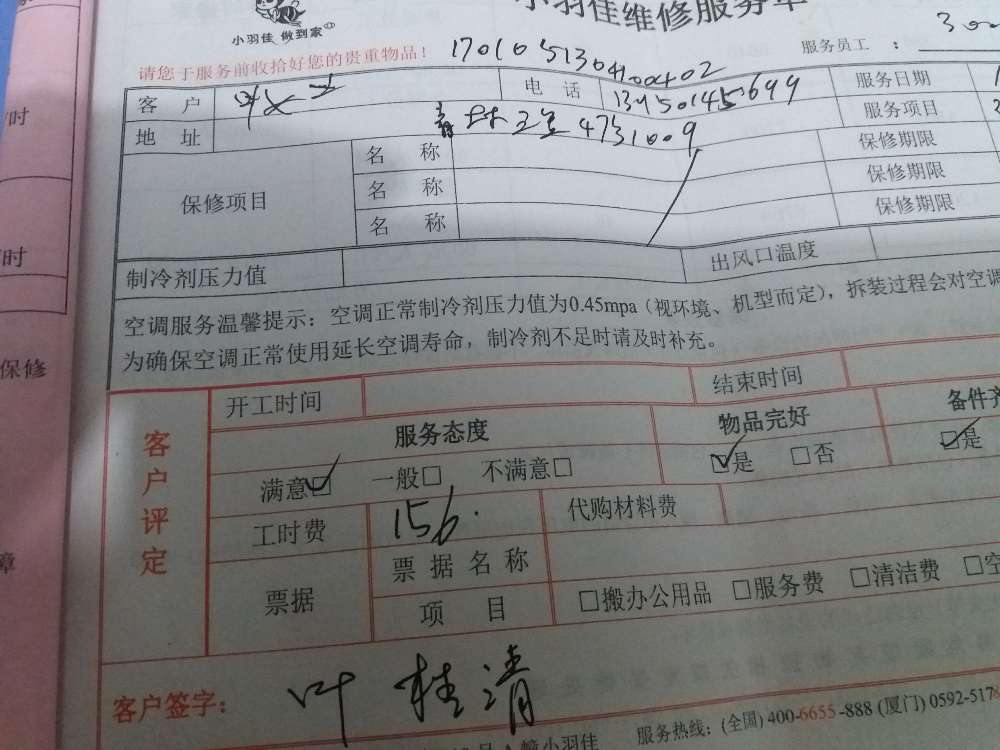 小羽佳 做到家
小羽佳维修服务单
服务员工 ： 300
请您于服务前收拾好您的贵重物品！ 1701051304100402
客 户 叶女士 电 话 13950145699 服务日期
地 址 4731009 服务项目
保修项目 名 称 保修期限
名 称 保修期限
名 称 保修期限
制冷剂压力值 出风口温度
空调服务温馨提示：空调正常制冷剂压力值为0.45mpa（视环境、机型而定），拆装过程会对空调
为确保空调正常使用延长空调寿命，制冷剂不足时请及时补充。
客户评定
开工时间 结束时间
服务态度 物品完好 备件齐
满意☑ 一般□ 不满意□ ☑是 □否 ☑是
工时费 156. 代购材料费
票据 票据名称
项 目 □搬办公用品 □服务费 □清洁费 □空
客户签字： 叶桂清
小羽佳 服务热线：(全国) 400-6655-888 (厦门) 0592-5178
时
时
保修
障